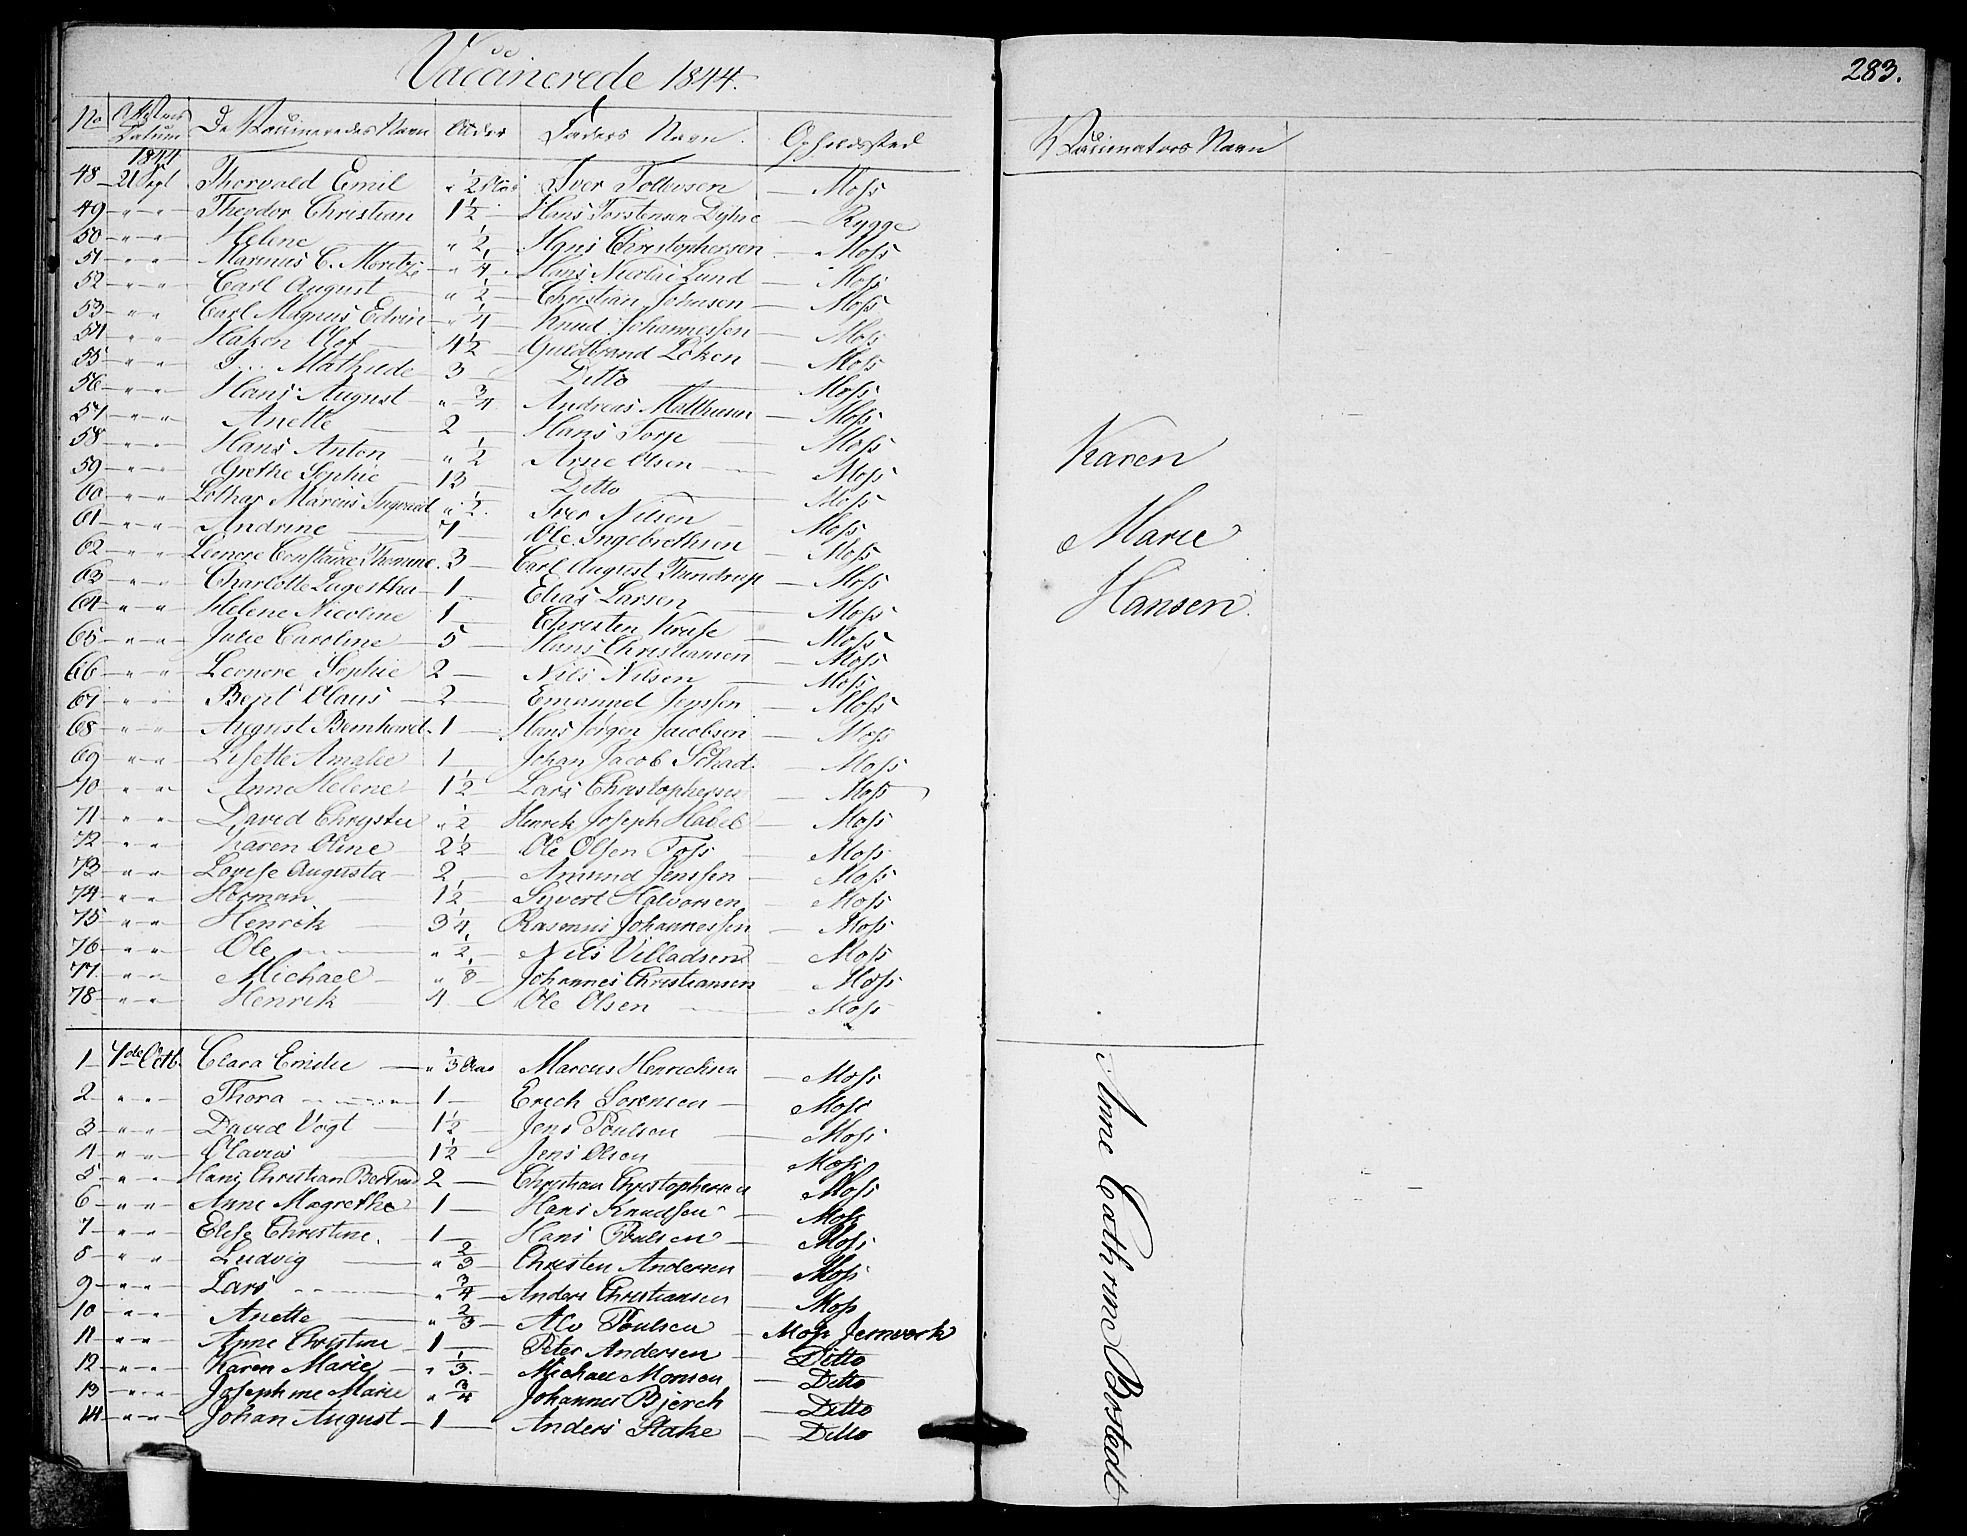 Vaccinerede 1844.
283.
No Attestens Datum De Vaccineredes Navn Alder Faders Navn. Opholdssted Vaccinators Navn
1844
48 21 Sept Thorvald Emil " 1/2 Aar Iver Tollevsen — Moss
49 " " Theodor Christian 1 1/2 Hans Torstensen Dyhre — Rygge
50 " " Helene " 1/2 Hans Christophersen — Moss
51 " " Marinus C. Moritz " 1/4 Hans Nicolai Lund Moss
52 " " Carl August " 1/2 Christian Johnsen — Moss
53 " " Carl Magnus Edvin " 1/4 Knud Johannessen — Moss
54 " " Hakon Olof 4 1/2 Guldbrand Løken — Moss
55 " " J... Mathilde 3 Ditto — Moss
56 " " Hans August " 3/4 Andreas Matthiesen — Moss
57 " " Anette 2 Hans Torp — Moss
58 " " Hans Anton " 1/2 Arne Olsen — Moss
59 " " Grethe Sophie 13 Ditto — Moss
60 " " Lothar Marcus " 1/2 Iver Nilsen — Moss
61 " " Andrine 7 Ole Ingebrethsen — Moss
62 " " Leonore Constance Thomine 3 Carl August Tandrup — Moss
63 " " Charlotte Lagertha 1 Elias Larsen — Moss
64 " " Helene Nicoline 1 Christen Kruse — Moss
65 " " Julie Caroline 5 Hans Christiansen — Moss
66 " " Leonore Sophie 2 Nils Nilsen — Moss
67 " " Bent Olaus 2 Emanuel Jenssen — Moss
68 " " August Bernhard 1 Hans Jørgen Jacobsen — Moss
69 " " Lisette Amalie 1 Johan Jacob Schad — Moss
70 " " Anne Helene 1 1/2 Lars Christophersen — Moss
71 " " David Chryster " 1/2 Henrik Joseph — Moss
72 " " Karen Oline 2 1/2 Ole Olsen Foss — Moss
73 " " Lovise Augusta 2 Amund Jenssen — Moss
74 " " Herman 1 1/2 Syvert Halvorsen — Moss
75 " " Henrik 3 1/4 Rasmus Johannessen — Moss
76 " " Ole " 1/2 Nils Villadsen — Moss
77 " " Michael " 1/8 Johannes Christiansen Moss
78 " " Henrik 4 Ole Olsen — Moss
Karen
Marie
Hansen.
1 7de Octb. Clara Emilie " 1/3 Aar Marcus Henrichsen — Moss
2 " " Thora 1 Erich Sorensen — Moss
3 " " David Vogt 1 1/2 Jens Poulsen — Moss
4 " " Olavus 1 1/2 Jens Olsen — Moss
5 " " Hans Christian 2 Christian Christophersen Moss
6 " " Anne Magrethe 1 Hans Knudsen — Moss
7 " " Elise Christine. 1 Hans Poulsen — Moss
8 " " Ludvig " 2/3 Christen Andersen — Moss
9 " " Lars " 3/4 Anders Christiansen — Moss
10 " " Anette " 2/3 Alv Poulsen — Moss Jernverk
11 " " Anne Christine 1 Peter Andersen — Ditto
12 " " Karen Marie " 1/3. Michael Monsen — Ditto
13 " " Josephine Marie " 3/4 Johannes Bjerch — Ditto
14 " " Johan August 1 Anders Stake — Ditto
Anne Cathrine Bostedt